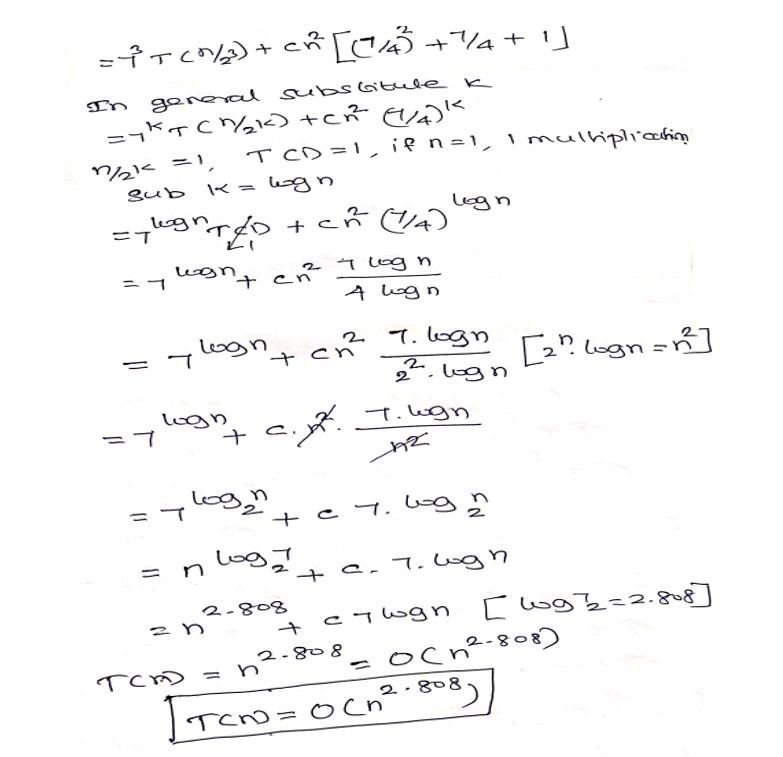 = 7³ T(n/2³) + cn² [(7/4)² + 7/4 + 1]
In general substitute k
= 7ᵏ T(n/2k) + cn² (7/4)ᵏ
n/2k = 1, T(1) = 1, if n=1, 1 multiplication
sub k = log n
= 7^log n T(1) + cn² (7/4)^log n
= 7^log n + cn² 7 log n / 4 log n
= 7^log n + cn² 7. log n / 2². log n [2ⁿ. log n = n²]
= 7^log n + c. n². 7. log n / n²
= 7^log₂n + c 7. log₂n
= n^log₂7 + c. 7. log n
= n^2.808 + c 7 log n [log₂7 = 2.808]
T(n) = n^2.808 = O(n^2.808)
T(n) = O(n^2.808)